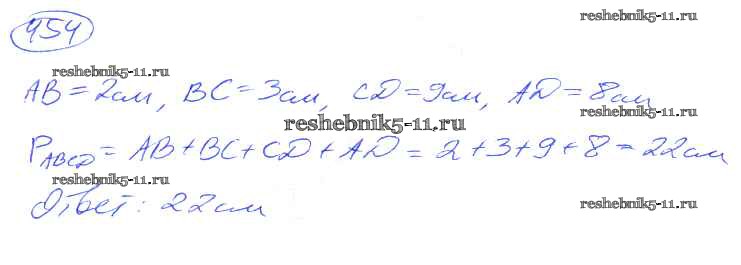 954 reshebnik5-11.ru
reshebnik5-11.ru
AB = 2см, BC = 3см, CD = 9см, AD = 8см
reshebnik5-11.ru
reshebnik5-11.ru
P_ABCD = AB + BC + CD + AD = 2 + 3 + 9 + 8 = 22см
reshebnik5-11.ru
Ответ: 22см reshebnik5-11.ru